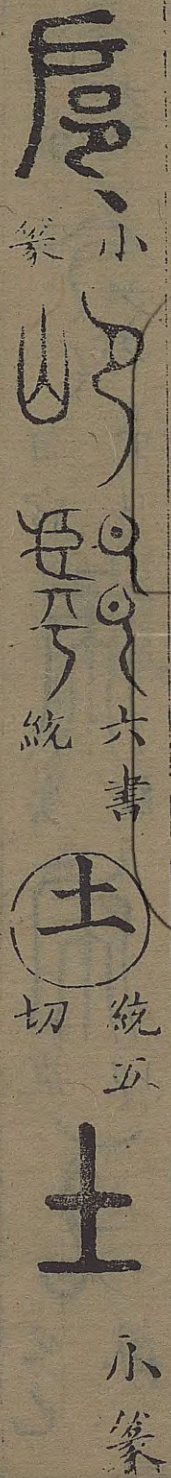 扈
小篆
六書統
土
統五切
土
小篆